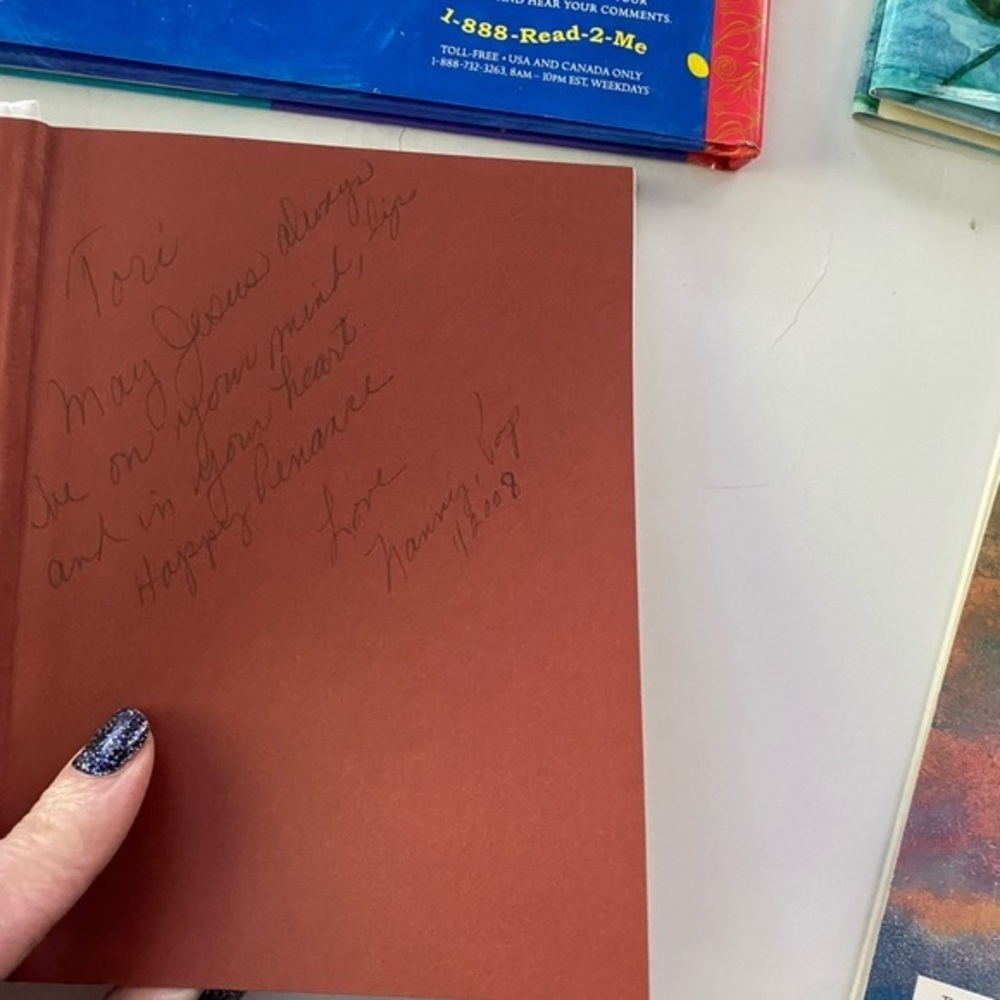 AND HEAR YOUR COMMENTS.
1-888-Read-2-Me
TOLL-FREE • USA AND CANADA ONLY
1-888-732-3263, 8AM – 10PM EST, WEEKDAYS
Tori
May Jesus always
be on your mind, lips
and in your heart.
Happy Penance
Love
Nanny, Pop
1/2008